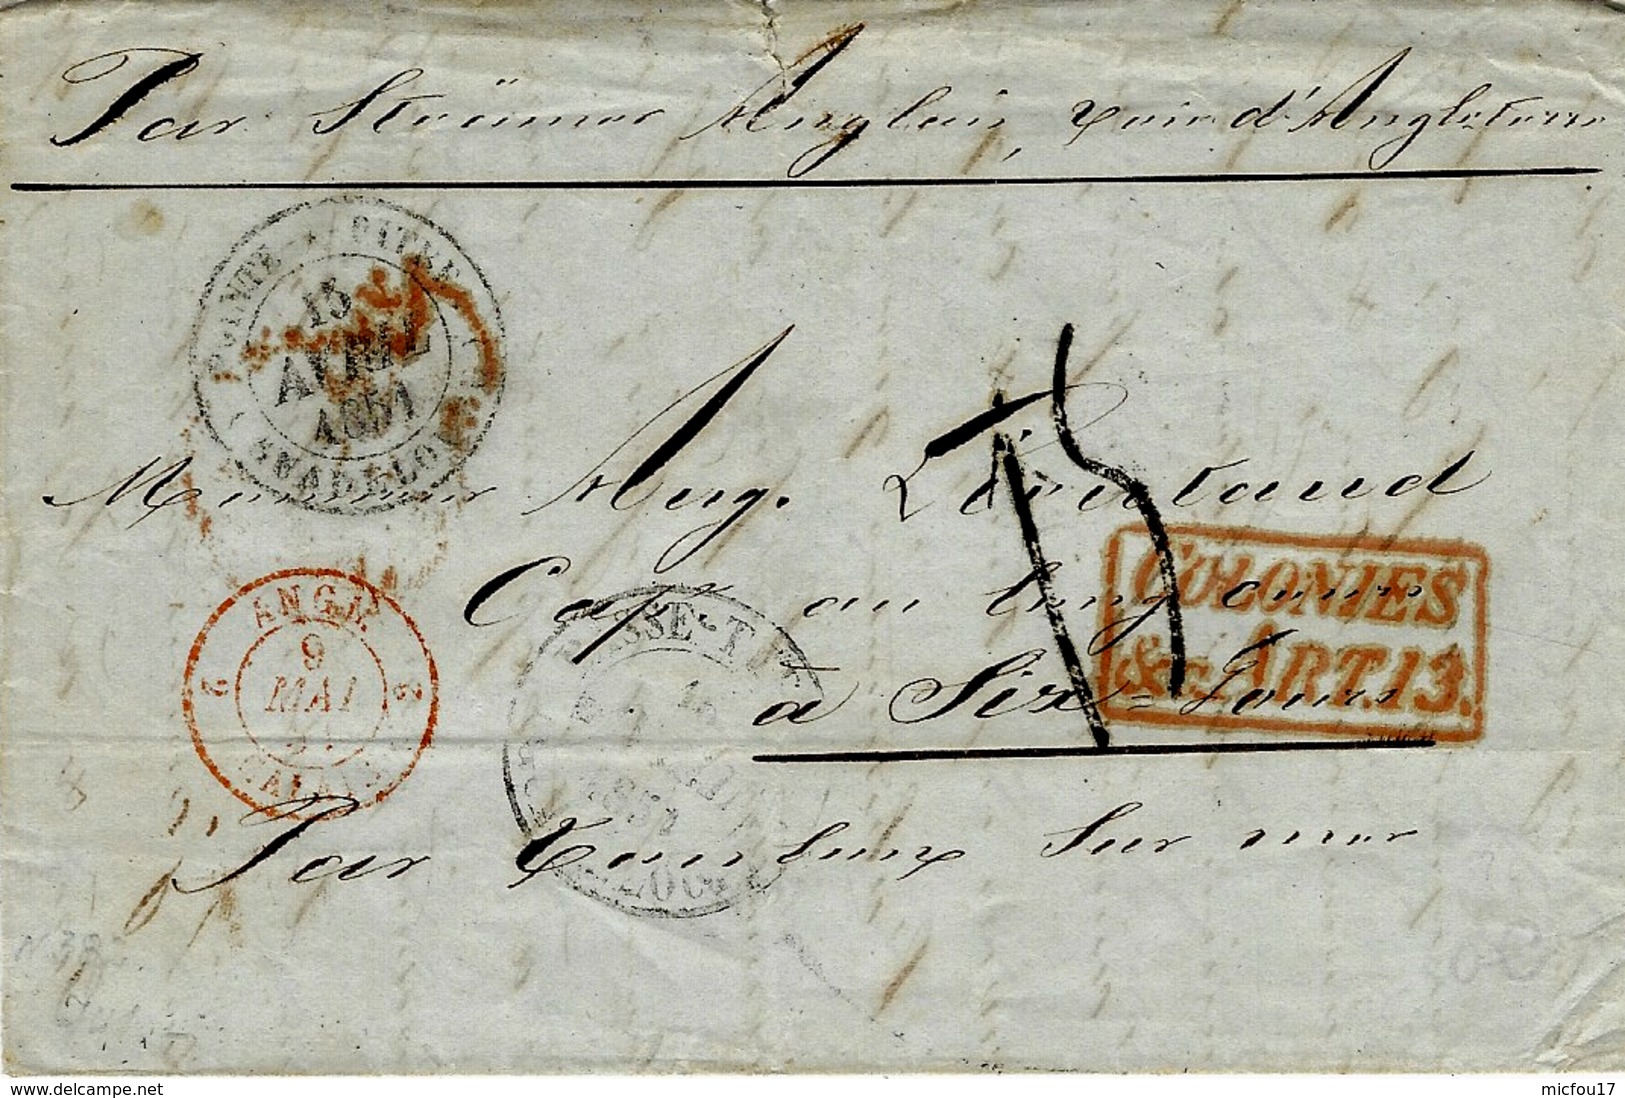 Par Steamer Anglais, voie d'Angleterre
POINTE-A-PITRE
15
AVRIL
1851
GUADELOUPE
Monsieur Aug.
Capne au long cours
à Six=Fours
COLONIES
&c. ART. 13.
15
ANGL.
9
MAI
51
CALAIS
2 2
BASSE-TERRE
1851
Par Toulon sur mer
www.delcampe.net
micfou17